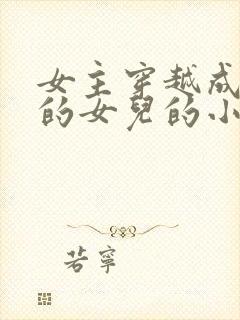 女主穿越成
的女兒的小
若寧